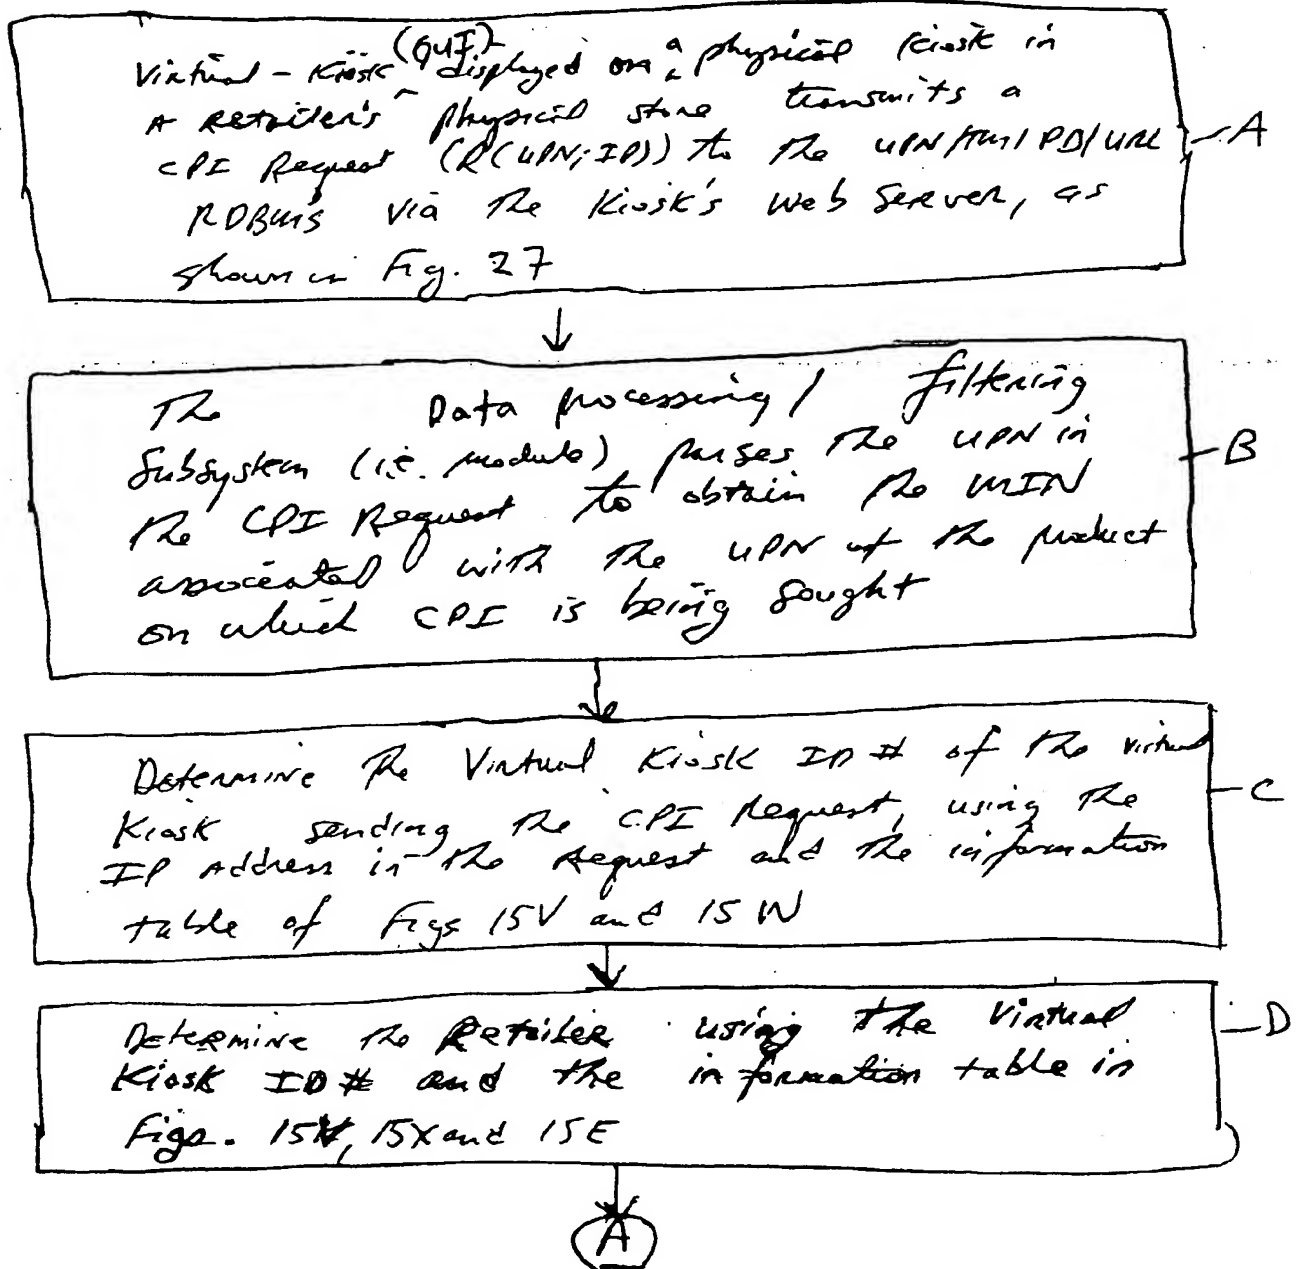 (GUI)
Virtual-Kiosk displayed on a physical kiosk in
A Retailer's physical store transmits a
CPI Request (R(UPN; IP)) to the UPN/TM/PD/URL
RDBMS via the Kiosk's Web Server, as
shown in Fig. 27
A
The Data processing/ filtering
Subsystem (i.e. module) parses the UPN in
the CPI Request to obtain the MIN
associated with the UPN of the product
on which CPI is being sought
B
Determine the Virtual Kiosk ID # of the virtual
Kiosk sending the CPI Request, using the
IP Address in the Request and the information
table of Figs 15V and 15W
C
Determine the Retailer using the Virtual
Kiosk ID # and the information table in
Figs. 15V, 15X and 15E
D
A